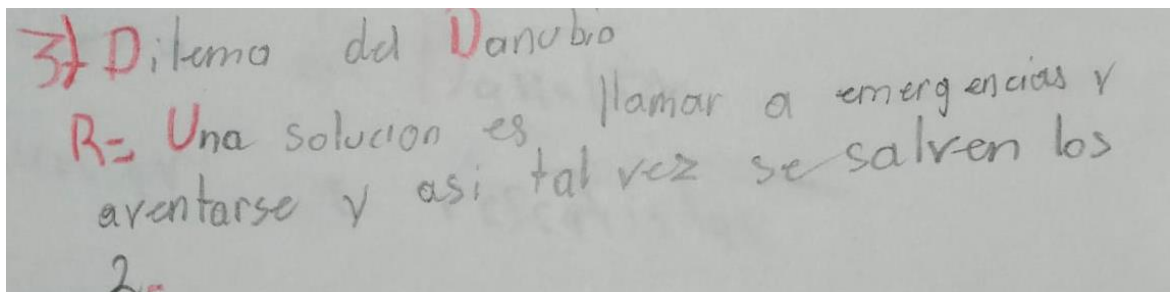 3) Dilema del Danubio
R= Una solucion es llamar a emergencias y
aventarse y asi tal vez se salven los
2.